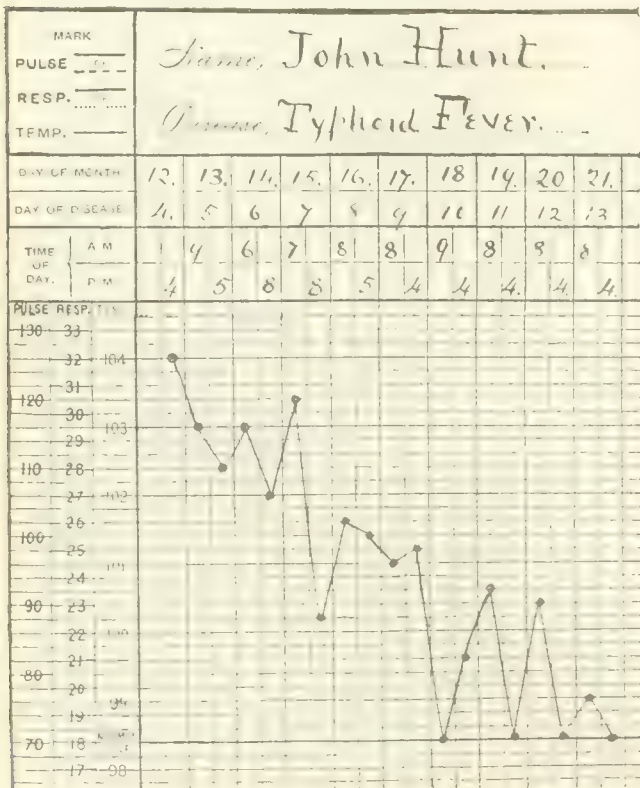 MARK
PULSE
RESP.
TEMP.
Name, John Hunt.
Disease, Typhoid Fever.
DAY OF MONTH 12. 13. 14. 15. 16. 17. 18 19. 20 21.
DAY OF DISEASE 4. 5 6 7 8 9 10 11 12 13
TIME OF DAY. A M 9 6 7 8 8 9 8 8 8
P M 4 5 8 8 5 4 4 4. 4. 4.
PULSE RESP.
130 33
32 104
31
120 30
29 103
110 28
27 102
26
100 25
24
90 23
22
80 21
20
19 99
70 18
17 98